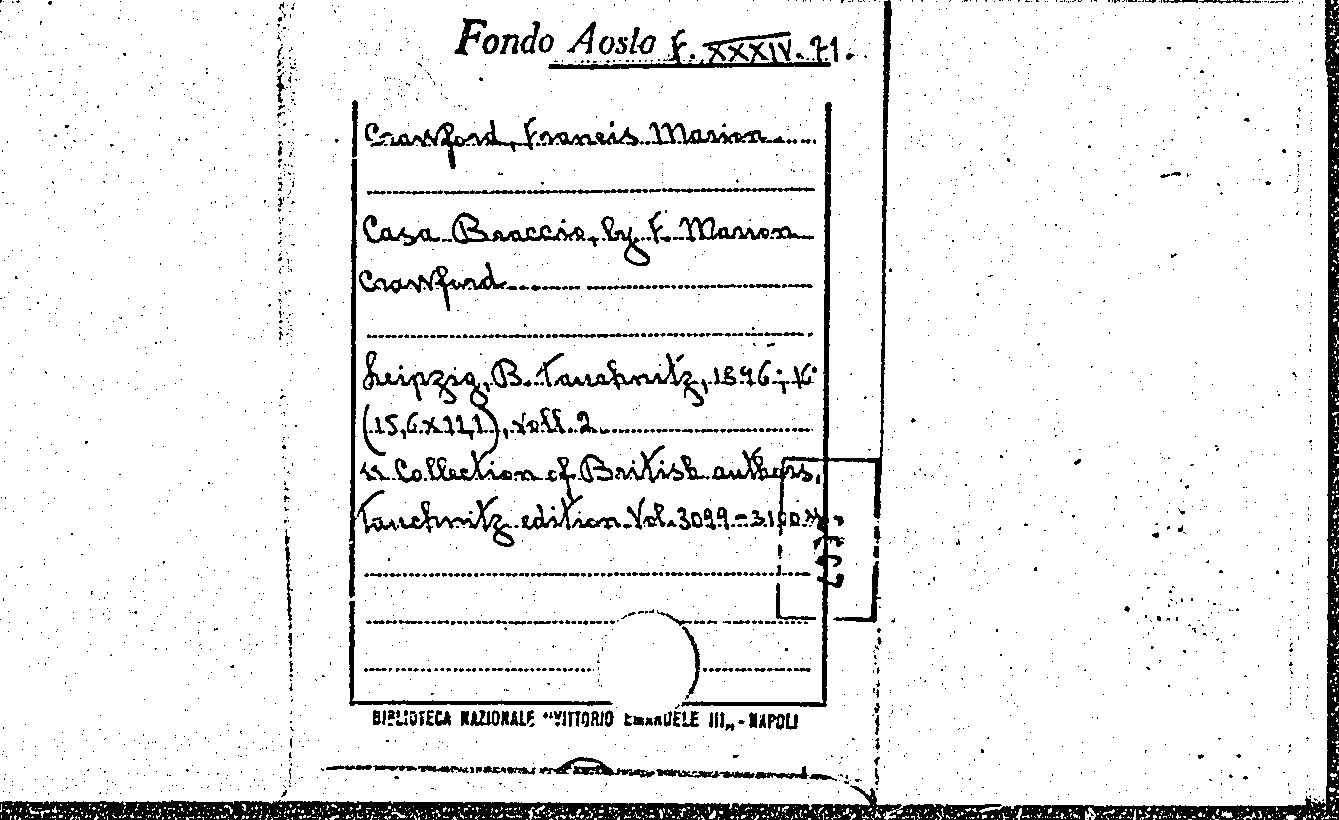 Fondo Aosta F. XXXIV. 71.
Crawford, Francis Marion
Casa Braccio, by F. Marion
Crawford
Leipzig, B. Tauchnitz, 1896; 16°
(15,6x11,1), voll. 2
« Collection of British authors,
Tauchnitz edition Vol. 3099-3100»
BIBLIOTECA NAZIONALE "VITTORIO EMANUELE III„ - NAPOLI